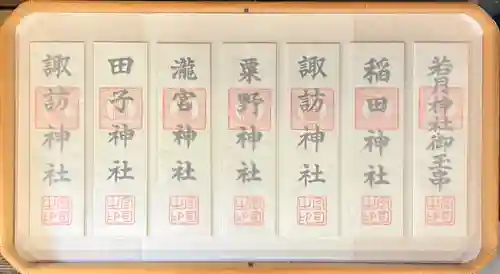 若月神社御玉串
稲田神社
諏訪神社
粟野神社
諏訪神社
瀧宮神社
田子神社
諏訪神社